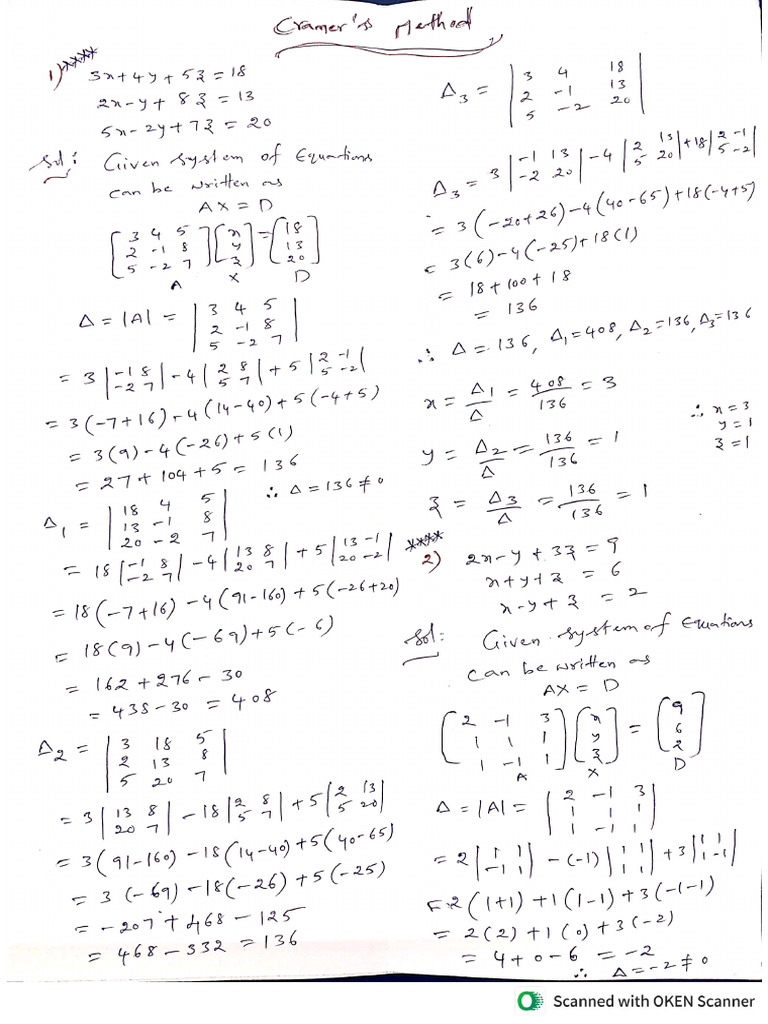 Cramer's Method
1) ****
3x+4y+5z=18
2x-y+8z=13
5x-2y+7z=20
Sol: Given system of Equations
can be written as
AX=D
[3 4 5; 2 -1 8; 5 -2 7] [x; y; z] = [18; 13; 20]
A X D
Δ=|A| = |3 4 5; 2 -1 8; 5 -2 7|
= 3|-1 8; -2 7| -4|2 8; 5 7| +5|2 -1; 5 -2|
=3(-7+16)-4(14-40)+5(-4+5)
=3(9)-4(-26)+5(1)
=27+104+5=136
∴ Δ=136≠0
Δ1 = |18 4 5; 13 -1 8; 20 -2 7|
= 18|-1 8; -2 7| -4|13 8; 20 7| +5|13 -1; 20 -2|
=18(-7+16)-4(91-160)+5(-26+20)
= 18(9)-4(-69)+5(-6)
= 162+276-30
= 438-30 = 408
Δ2 = |3 18 5; 2 13 8; 5 20 7|
= 3|13 8; 20 7| -18|2 8; 5 7| +5|2 13; 5 20|
=3(91-160)-18(14-40)+5(40-65)
= 3(-69)-18(-26)+5(-25)
= -207+468-125
= 468-332 =136
Δ3 = |3 4 18; 2 -1 13; 5 -2 20|
Δ3 = 3|-1 13; -2 20| -4|2 13; 5 20| +18|2 -1; 5 -2|
= 3(-20+26)-4(40-65)+18(-4+5)
= 3(6)-4(-25)+18(1)
= 18+100+18
= 136
∴ Δ=136, Δ1=408, Δ2=136, Δ3=136
x = Δ1/Δ = 408/136 = 3
y = Δ2/Δ = 136/136 = 1
z = Δ3/Δ = 136/136 = 1
∴ x=3
y=1
z=1
****
2) 2x-y+3z=9
x+y+z = 6
x-y+z = 2
Sol: Given system of Equations
can be written as
AX = D
[2 -1 3; 1 1 1; 1 -1 1] [x; y; z] = [9; 6; 2]
A X D
Δ=|A| = |2 -1 3; 1 1 1; 1 -1 1|
=2|1 1; -1 1| -(-1)|1 1; 1 1| +3|1 1; 1 -1|
=2(1+1)+1(1-1)+3(-1-1)
= 2(2)+1(0)+3(-2)
= 4+0-6 = -2
∴ Δ=-2≠0
Scanned with OKEN Scanner